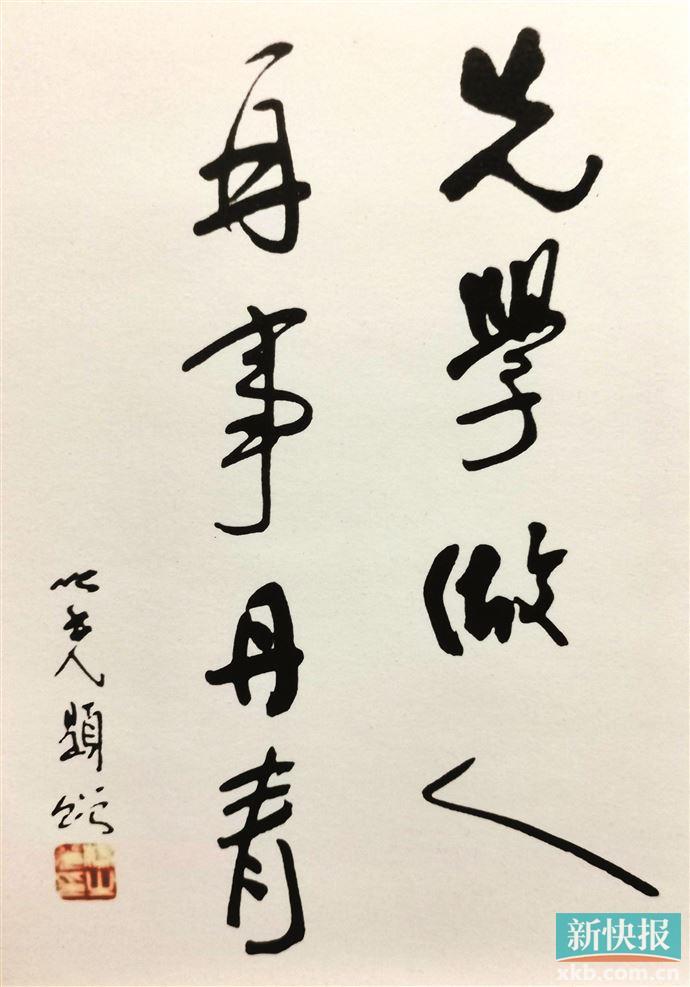 先學做人
再事丹青
題
新快报
xkb.com.cn